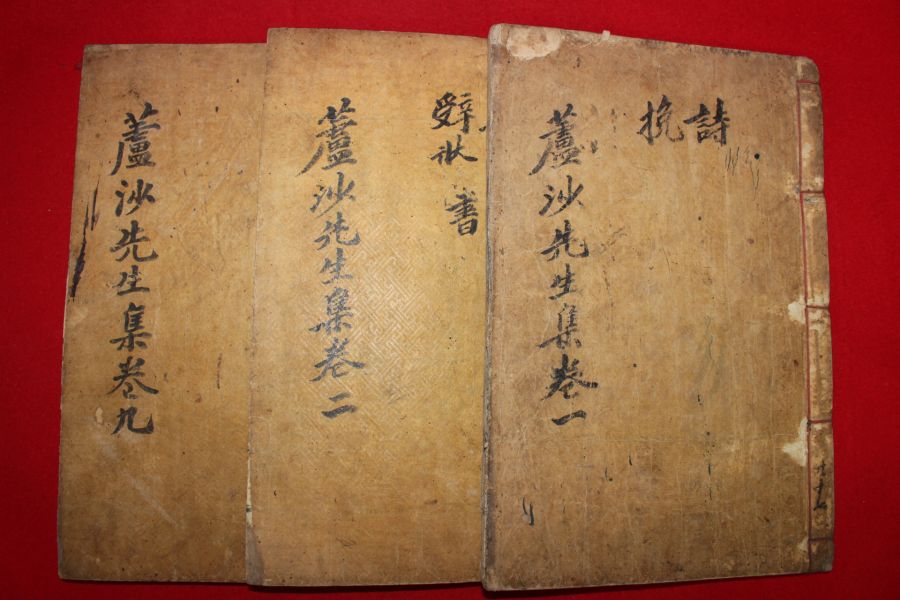 詩
挽
蘆沙先生集卷一
辤狀 書
蘆沙先生集卷二
蘆沙先生集卷九